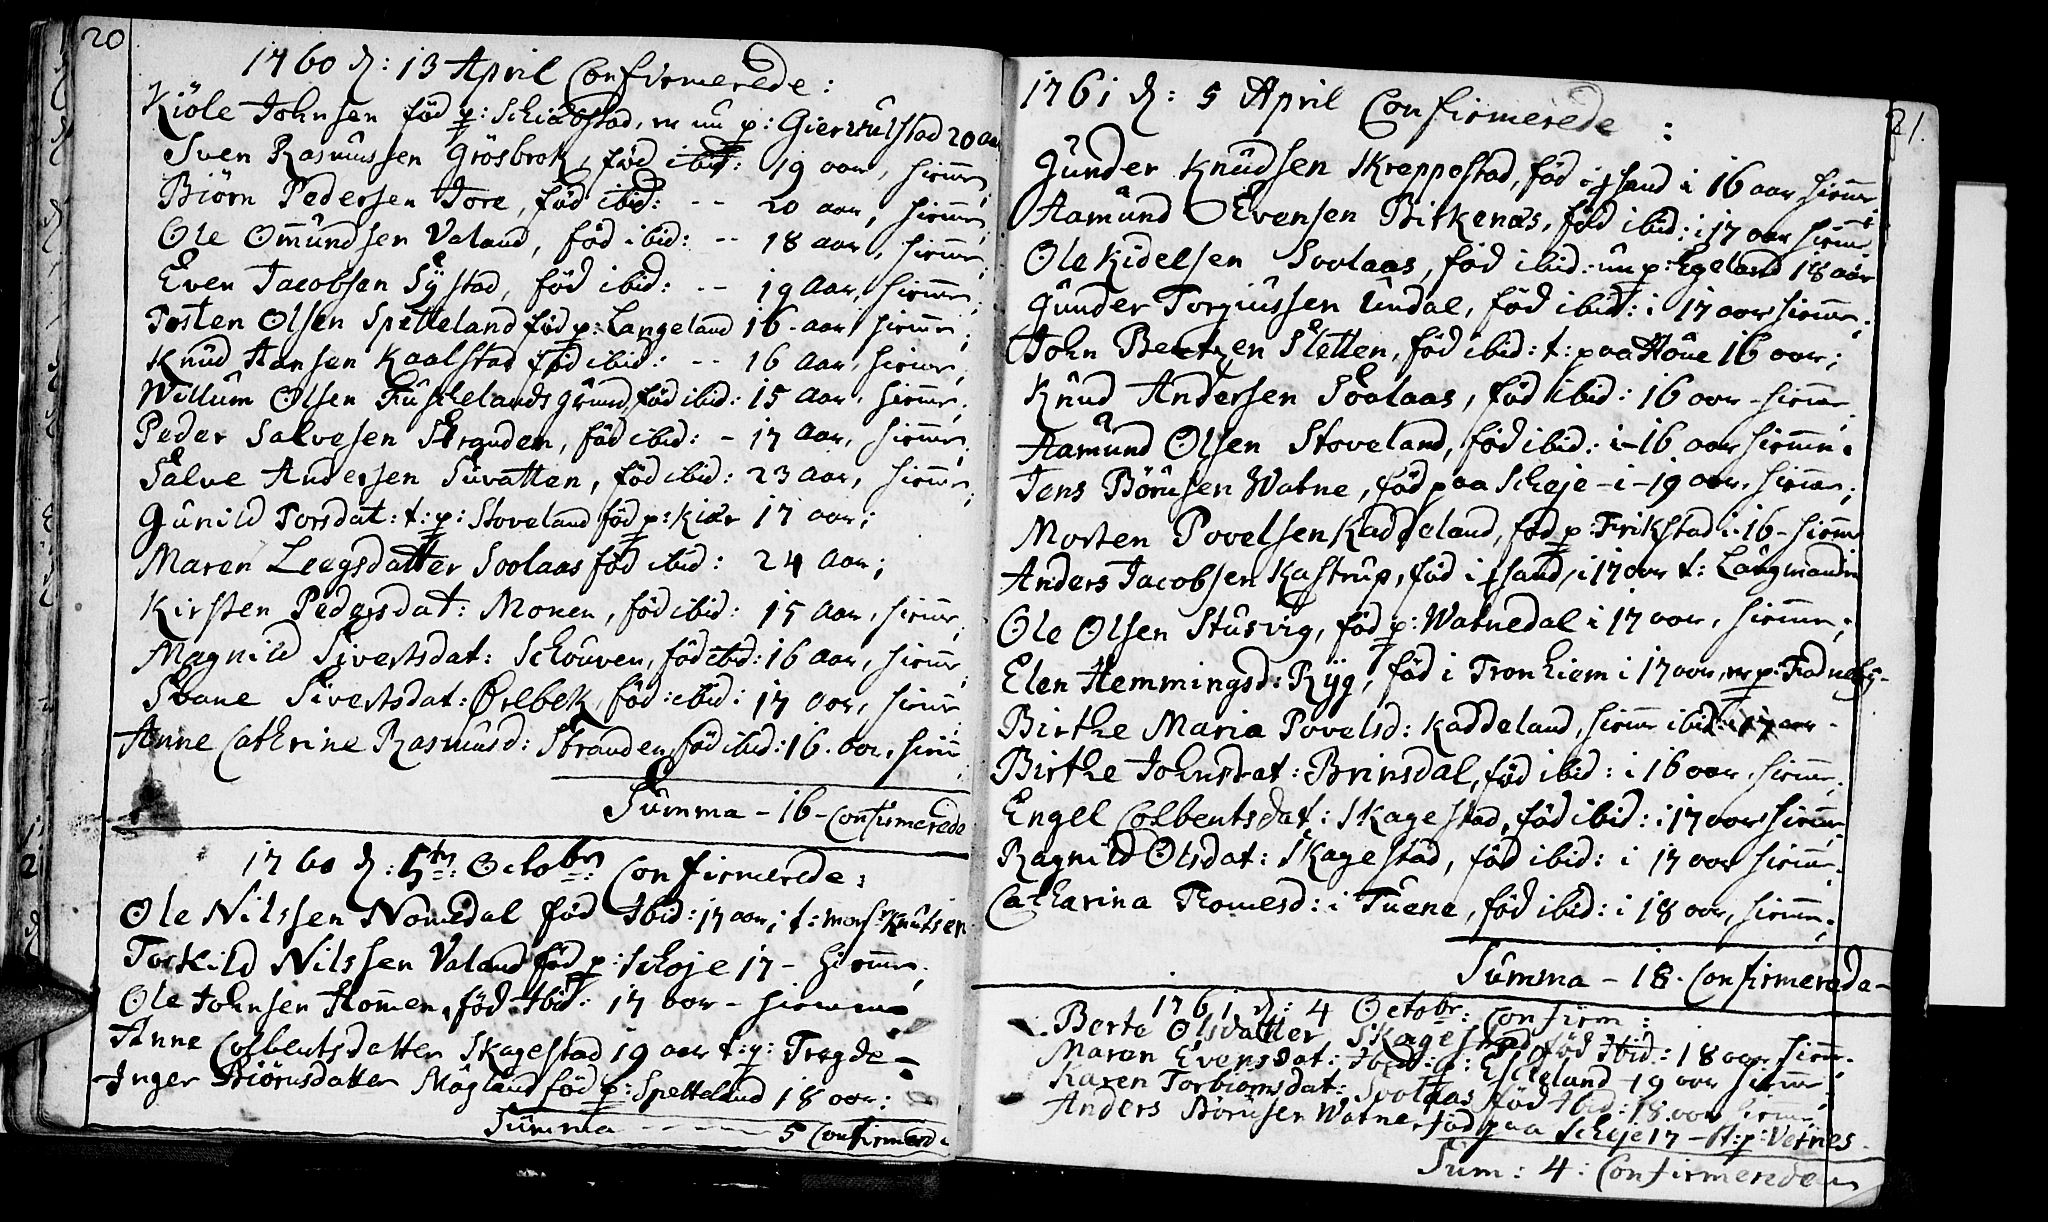 20
1760 d: 13 April Confirmerede:
Kiöle Johnsen föd p: Schiævstad, er nu p: Gierwulstad 20 aar
Sven Rasmussen Grösbrok, föd ibid: 19 aar, hiemme;
Biörn Pedersen Tore, föd ibid: -- 20 aar, hiemme;
Ole Omundsen Valand, föd ibid: -- 18 aar, hiemme;
Even Jacobsen Systad, föd ibid: -- 19 Aar, hiemme;
Tosten Olsen Spetteland föd p: Langeland 16 - aar, hiemme;
Knud Hansen Kaalstad föd ibid: -- 16 Aar, hiemme;
Willum Olsen Fuskelands grund, föd ibid: 15 Aar, hiemme;
Peder Salvesen Stranden, föd ibid: - 17 Aar, hiemme;
Salve Andersen Suvatten, föd ibid: 23 Aar, hiemme;
Gunild Torsdat: t: p: Stoveland föd p: Kiær 17 aar;
Maren Leegsdatter Soolaas föd ibid: 24 Aar;
Kirsten Pedersdat: Monen, föd ibid: 15 Aar, hiemme;
Magnild Sivertsdat: Schouven, föd ibid: 16 Aar, hiemme;
Sivertsdat: Örebek, föd: ibid: 17 aar, hiemme;
Anne Cathrine Rasmusd: Stranden, föd ibid: 16. aar, hiem
Summa - 16 - Confirmerede
1760 d: 5te: Octobr: Confirmerede:
Ole Nilssen Nomedal föd Ibid: 17 aar; t: Mons: Knutsen
Torkild Nilssen Valand föd p: Schoje 17 - hiemme;
Ole Johnsen Homen, föd Ibid: 17 aar - hiemme;
Anne Colbentsdatter Skagestad 19 aar t: p: Tregde -
Inger Biörnsdatter Mögland föd p: Spetteland 18 aar:
Summa ----- 5 Confirmerede
21.
1761 d: 5 April Confirmerede:
Gunder Knudsen Skreppestad, föd i sand i 16 aar hiemme
Aamund Evensen Birkenæs, föd ibid: i 17 aar hiemme
Ole Kidelsen Soolaas, föd ibid: nu p: Egeland 18 aar
Gunder Torgiussen Undal, föd ibid: i 17 aar hiemme;
John Bentzen Sletten, föd ibid: t: paa Houe 16 aar;
Knud Andersen Soolaas, föd ibid: 16 aar - hiemme
Aamund Olsen Stoveland, föd ibid: i - 16 aar hiemme:
Jens Börusen Watne, föd paa Schoje - i - 19 aar, hiemme;
Morten Povelsen Kaddeland, föd p: Frikstad i - 16 - hiemme
Anders Jacobsen Kastrup, föd i sand, i 17 aar t: Laugmandin
Ole Olsen Stusvig, föd p: Watnedal i 17 aar, hiemme;
Elen Hemmingsd: Ryg, föd i Tronhiem i 17 aar, er p: Fodneby -
Birthe Maria Povelsd: Kaddeland, hiemme ibid: 17 aar -
Birthe Johnsdat: Brinsdal, föd ibid: i 16 aar, hiemme;
Engel Colbentsdat: Skagestad, föd ibid: i 17 aar hiemme;
Ragnild Olsdat: Skagestad, föd ibid: i 17 aar hiemme;
Catharina Tromesd: i Tuene, föd ibid: i 18 aar, hiemme;
Summa - 18. Confirmerede -
1761 d: 4 Octobr: Confirm:
Berte Olsdatter Skagestad föd Ibid: 18 aar hiemme:
Maren Evensdat: Ibid: p: Eskeland 19 aar hiemme
Karen Torbiornsdat: Soolaas föd Ibid: 18 aar hiemme;
Anders Börusen Watne, föd paa Schoje 17 - t: p: Vetnes
Sum: 4: Confirmerede